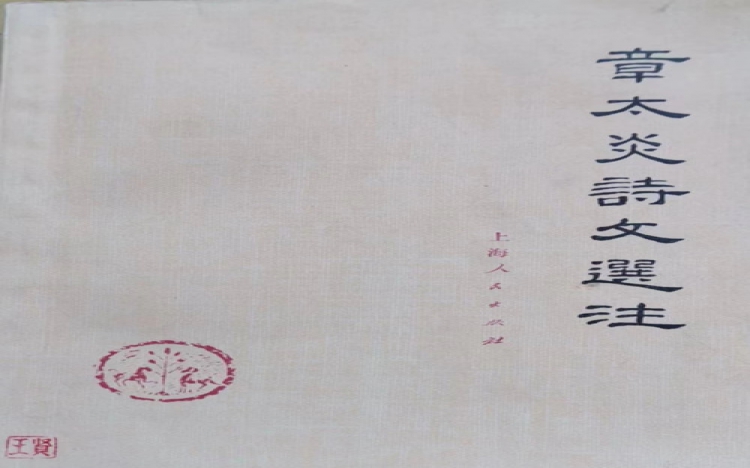 章太炎詩文選注
上海人民出版社
王賢